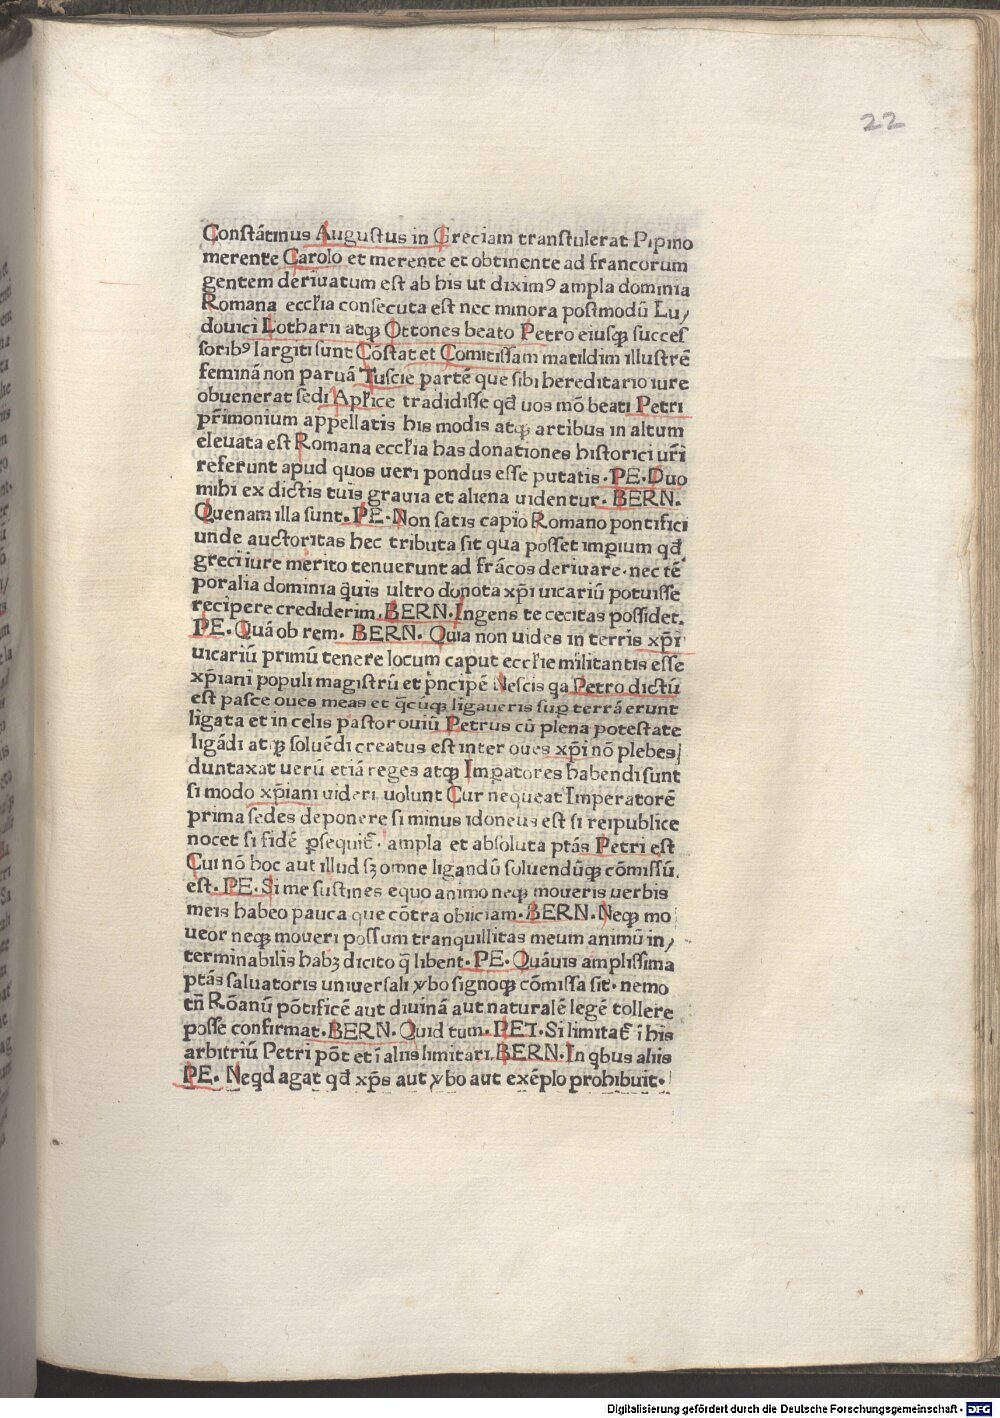 22
Constātinus Augustus in Greciam transtulerat Pipino
merente Carolo et merente et obtinente ad francorum
gentem deriuatum est ab his ut diximꝰ ampla dominia
Romana eccl'ia consecuta est nec minora postmodū Lu/
douici Lotharii atqꝫ Ottones beato Petro eiusqꝫ succes
soribꝰ largiti sunt Cōstat et Comitissam matildim illustrē
feminā non paruā Tuscie partē que sibi hereditario iure
obuenerat sedi Apl'ice tradidisse qđ uos mō beati Petri
pr̄imonium appellatis his modis atqꝫ artibus in altum
eleuata est Romana eccl'ia has donationes historici ur̄i
referunt apud quos ueri pondus esse putatis. PE. Duo
mihi ex dictis tuis grauia et aliena uidentur. BERN.
Quenam illa sunt. PE. Non satis capio Romano pontifici
unde auctoritas hec tributa sit qua posset imꝑium qđ
greci iure merito tenuerunt ad frācos deriuare. nec tē
poralia dominia q̄uis ultro donota xp̄i uicariū potuisse
recipere crediderim. BERN. Ingens te cecitas possidet.
PE. Quā ob rem. BERN. Quia non uides in terris xp̄i
uicariū primū tenere locum caput eccl'ie militantis esse
xp̄iani populi magistrū et p̄ncipē Nescis qa Petro dictū
est pasce oues meas et q̄cuqꝫ ligaueris suꝑ terrā erunt
ligata et in celis pastor ouiū Petrus cū plena potestate
ligādi atqꝫ soluēdi creatus est inter oues xp̄i nō plebes
duntaxat uerū etiā reges atqꝫ Imꝑatores habendi sunt
si modo xp̄iani uideri uolunt Cur nequeat Imperatorē
prima sedes deponere si minus idoneus est si reipublice
nocet si fidē ꝑsequit̄. ampla et absoluta ptās Petri est
Cui nō hoc aut illud sꝫ omne ligandū soluendūqꝫ cōmissū
est. PE. Si me sustines equo animo neqꝫ moueris uerbis
meis habeo pauca que cōtra obiiciam. BERN. Neqꝫ mo
ueor neqꝫ moueri possum tranquillitas meum animū in/
terminabilis habꝫ dicito q̄ libent. PE. Quāuis amplissima
ptās saluatoris uniuersali ꝟbo signoqꝫ cōmissa sit. nemo
tn̄ Rōanū pōtificē aut diuinā aut naturalē legē tollere
posse confirmat. BERN. Quid tum. PET. Si limitat̄ ī his
arbitriū Petri pōt et ī aliis limitari. BERN. In qbus aliis
PE. Neqd agat qđ xp̄s aut ꝟbo aut exēplo prohibuit.
Digitalisierung gefördert durch die Deutsche Forschungsgemeinschaft - DFG